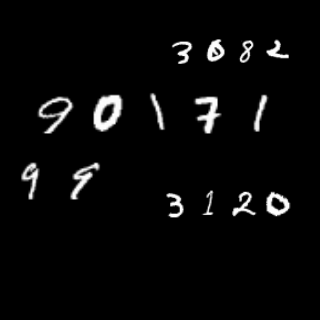 3082
90171
99
3120